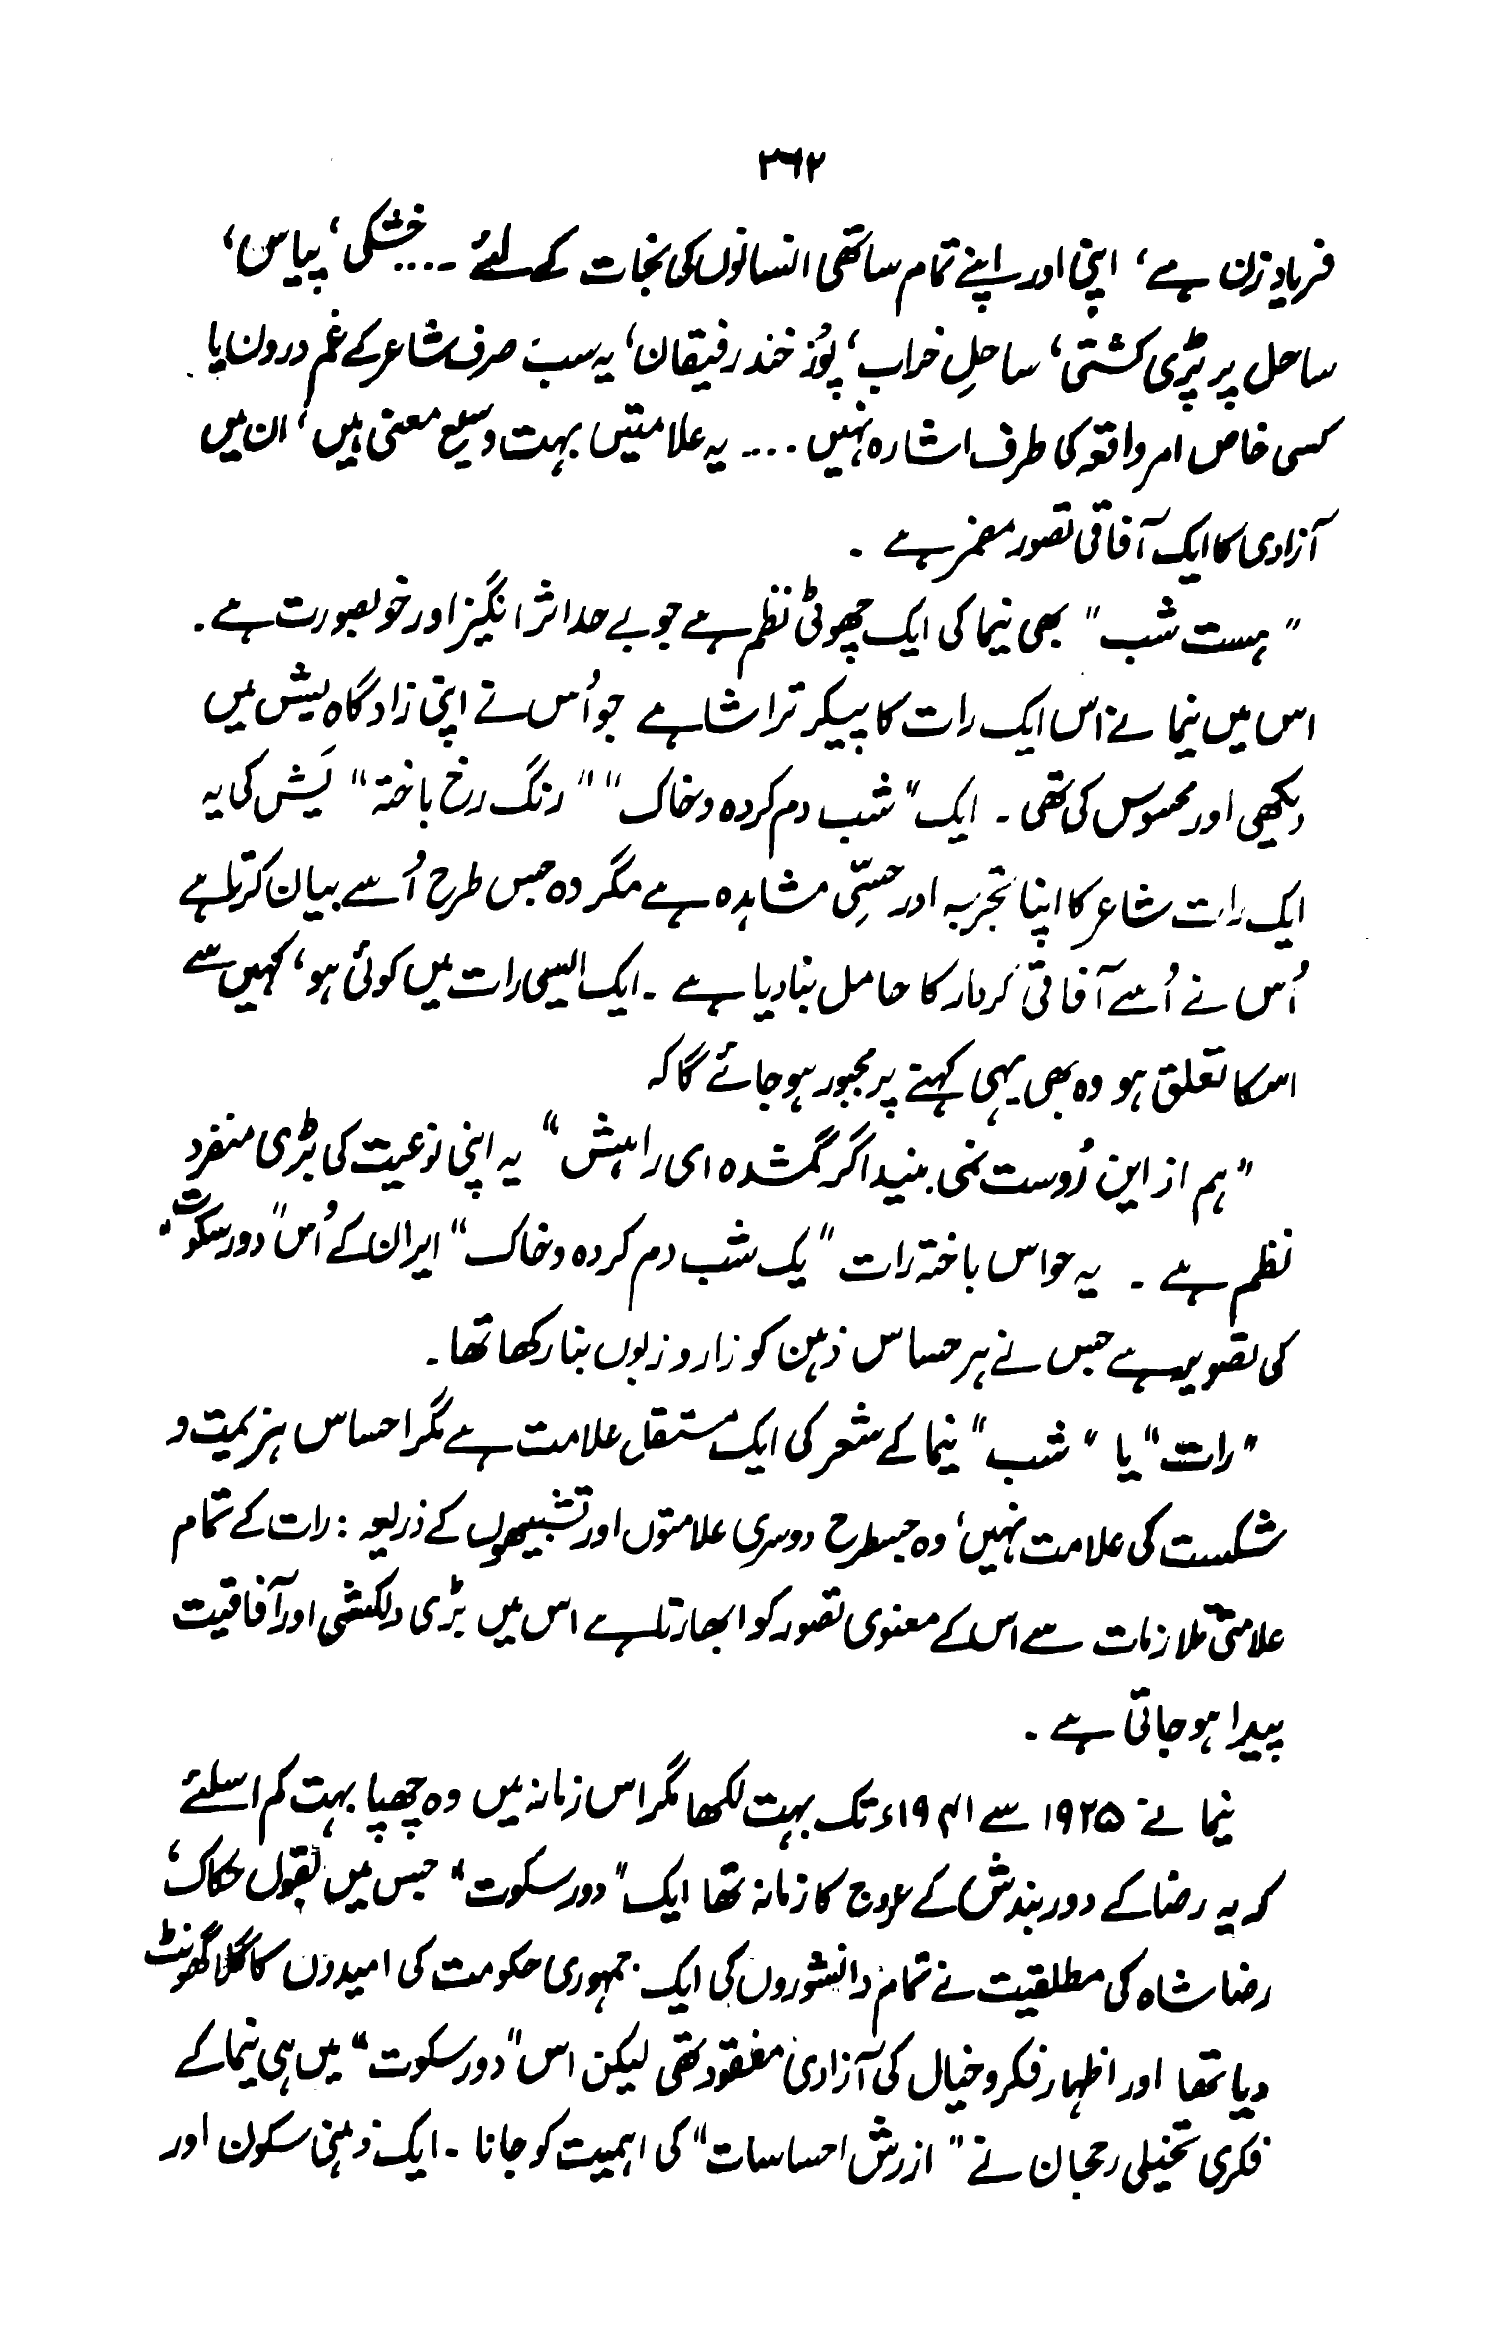 ۳۶۲
فریاد زن ہے، اپنی اور اپنے تمام ساتھی انسانوں کی نجات کے لئے ۔....خشکی، پیاس،
ساحل پر پڑی کشتی، ساحلِ خراب، پُوز خند رفیقان، یہ سب صرف شاعر کے غم درون یا
کسی خاص امر واقعہ کی طرف اشارہ نہیں .... یہ علامتیں بہت وسیع معنی ہیں، ان میں
آزادی کا ایک آفاقی تصور مضمر ہے ۔
"ہست شب" بھی نیما کی ایک چھوٹی نظم ہے جو بے حد اثر انگیز اور خوبصورت ہے۔
اس میں نیما نے اس ایک رات کا پیکر تراشا ہے جو اُس نے اپنی زادگاہ یش میں
دیکھی اور محسوس کی تھی ۔ ایک "شب دم کردہ و خاک" "رنگ رخ باختہ" یَش کی یہ
ایک رات شاعر کا اپنا تجربہ اور حسِّی مشاہدہ ہے مگر وہ جس طرح اُسے بیان کرتا ہے
اُس نے اُسے آفاقی کردار کا حامل بنا دیا ہے ۔ ایک ایسی رات میں کوئی ہو، کہیں سے
اسکا تعلق ہو وہ بھی یہی کہنے پر مجبور ہو جائے گا کہ
"ہم از این رُوست نمی بیند اگر گمشدہ ای راہش" یہ اپنی نوعیت کی بڑی منفرد
نظم ہے ۔ یہ حواس باختہ رات "یک شب دم کردہ و خاک" ایران کے اُس "دور سکوت"
کی تصویر ہے جس نے ہر حساس ذہن کو زار و زبوں بنا رکھا تھا۔
"رات" یا "شب" نیما کے شعر کی ایک مستقل علامت ہے مگر احساس ہزیمیت و
شکست کی علامت نہیں، وہ جسطرح دوسری علامتوں اور تشبیہوں کے ذریعہ : رات کے تمام
علامتی تلازمات سے اس کے معنوی تصور کو ابھارتا ہے اس میں بڑی دلکشی اور آفاقیت
پیدا ہو جاتی ہے ۔
نیما نے ۱۹۲۵ سے ۱۹۴۱ء تک بہت لکھا مگر اس زمانہ میں وہ چھپا بہت کم اسلئے
کہ یہ رضا کے دور بندش کے عروج کا زمانہ تھا ایک "دور سکوت" جس میں بقول حکاک،
رضا شاہ کی مطلقیت نے تمام دانشوروں کی ایک جمہوری حکومت کی امیدوں کا گلا گھونٹ
دیا تھا اور اظہار فکر و خیال کی آزادی مفقود تھی لیکن اس "دور سکوت" میں ہی نیما کے
فکری تخیلی رجحان نے "ازرش احساسات" کی اہمیت کو جانا ۔ ایک ذہنی سکون اور